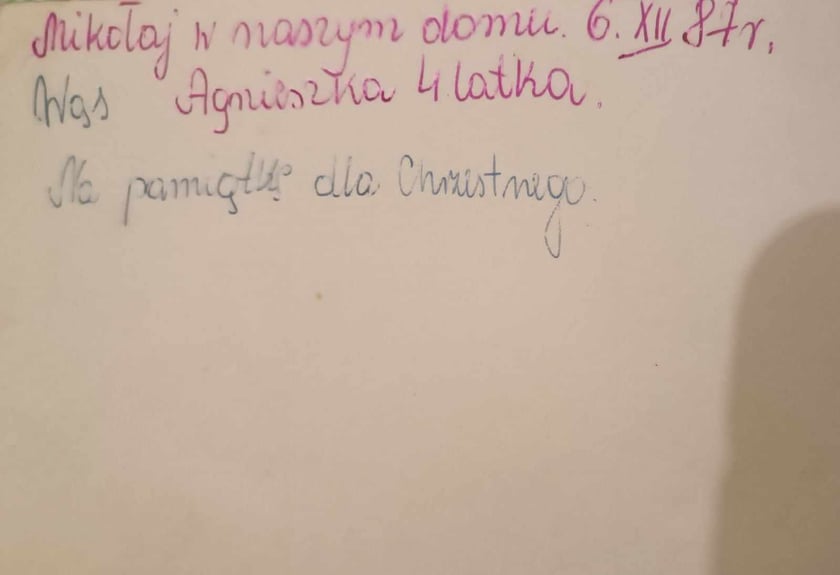 Mikołaj w naszym domu. 6. XII 87r.
Wąs Agnieszka 4 latka.
Na pamiątkę dla Chrzestnego.